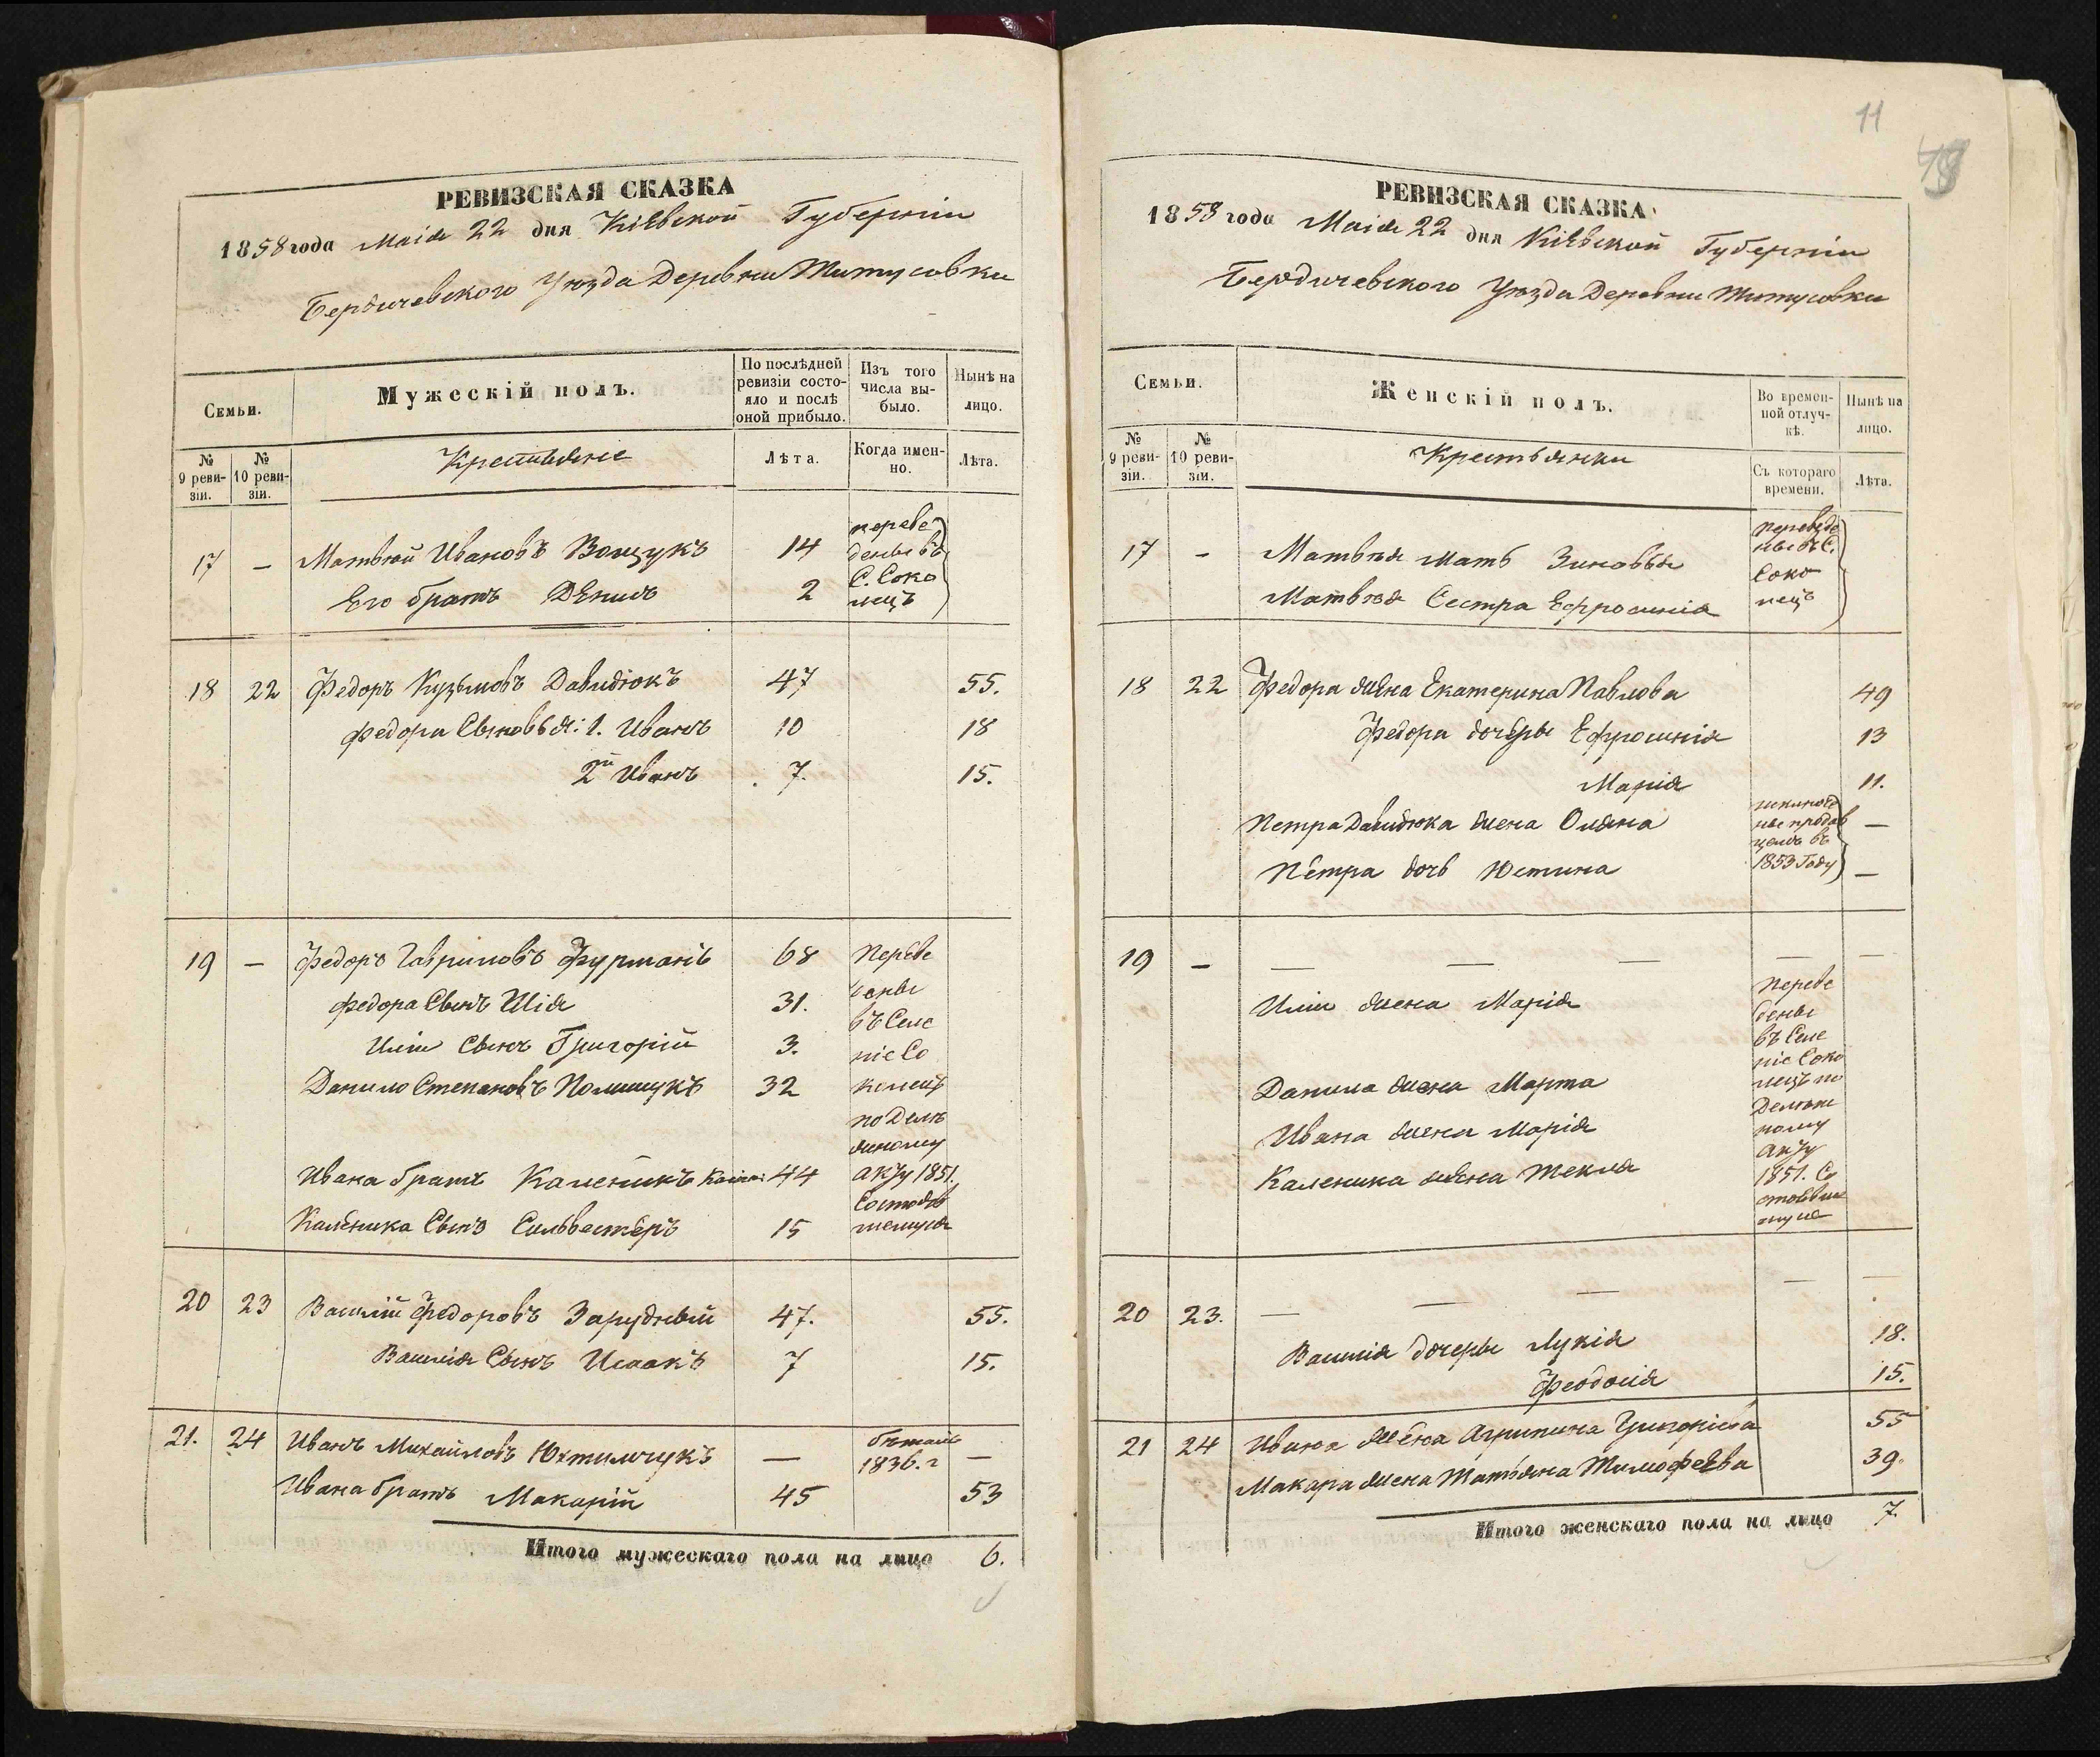 РЕВИЗСКАЯ СКАЗКА
1858 года Маія 22 дня Кіевской Губерніи
Бердичевского Уѣзда Деревни Титусовки
Семьи.
Мужескій полъ.
По послѣдней ревизіи состояло и послѣ оной прибыло.
Изъ того числа выбыло.
Нынѣ на лицо.
№ 9 ревизіи.
№ 10 ревизіи.
Крестьяне
Лѣта.
Когда именно.
Лѣта.
17 — Матвѣй Ивановъ 14
Его братъ Денисъ 2
переведены въ С. Соколецъ
18 22 Федоръ Кузьмовъ Давидюкъ 47 55.
Федора Сыновья: 1. Иванъ 10 18
2й Иванъ 7. 15.
19 — Федоръ Гавриловъ Фурманъ 68
Федора Сынъ Илія 31.
Иліи Сынъ Григорій 3.
Данило Степановъ Полищукъ 32
Ивана братъ Каленикъ 44
Каленика Сынъ Сильвестеръ 15
Переведены въ Селеніе Соколецъ по Акту 1851.
20 23 Василій Федоровъ Зарудный 47. 55.
Василія Сынъ Исаакъ 7 15.
21. 24 Иванъ Михайловъ Юхтимчукъ — бѣжалъ 1836. г —
Ивана братъ Макарій 45 53
Итого мужескаго пола на лицо 6.
11
РЕВИЗСКАЯ СКАЗКА
1858 года Маія 22 дня Кіевской Губерніи
Бердичевского Уѣзда Деревни Титусовки
Семьи.
Женскій полъ.
Во временной отлучкѣ.
Нынѣ на лицо.
№ 9 ревизіи.
№ 10 ревизіи.
Крестьянки
Съ котораго времени.
Лѣта.
17 — Матвѣя Мать Зиновья
Матвѣя Сестра Ефросинія
переведены въ С. Соколецъ
18 22 Федора жена Екатерина Павлова 49
Федора дочери Ефросинія 13
Марія 11.
Петра Давидюка жена Оляна —
Петра дочь Юстина —
1853 Году
19 — — — — — —
Иліи жена Марія
Данила жена Марта
Ивана жена Марія
Каленика жена Текля
Переведены въ Селеніе Соколецъ по Акту 1851.
20 23. — — — — —
Василія дочери Лукія 18.
Феодосія 15.
21 24 Ивана жена Агрипина Григоріева 55
Макара жена Татьяна Тимофеева 39.
Итого женскаго пола на лицо 7.